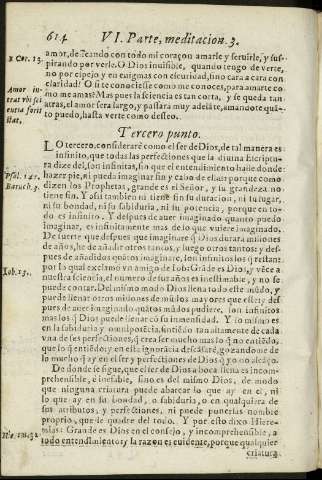 614 VI. Parte, meditacion. 3.
1 Cor. 13.
amor, deseando con todo mi coraçon amarle y seruirle, y sus-
pirando por verle. O Dios inuisible, quando tengo de verte,
no por espejo y en enigmas con escuridad, sino cara a cara con
claridad! O si te conociesse como me conoces, para amarte co-
Amor in-
trat vbi sci
entia foris
stat.
mo me amas! Mas pues la sciencia es tan corta, y se queda tan
atras, el amor sera largo, y passara muy adelãte, amandote quã-
to puedo, hasta verte como desseo.
Tercero punto.
LO tercero, considerarè como el ser de Dios, de tal manera es
infinito, que todas las perfecciones que la diuina Escriptu-
ra dize del, son infinitas, sin que el entendimiento halle donde
Psal. 147.
Baruch. 3.
hazer pie, ni pueda imaginar fin y cabo de ellas; porque como
dizen los Prophetas, grande es el Señor, y su grandeza no
tiene fin. Y assi tambien ni tiene fin su duracion, ni su lugar,
ni su bondad, ni su sabiduria, ni su potencia, porque en to-
do es infinito. Y despues de auer imaginado quanto puedo
imaginar, es infinitamente mas de lo que vuiere imaginado.
De suerte que despues que imaginare q̃ Dios durara millones
de años, he de añadir otros tantos, y luego otros tantos; y des-
pues de añadidos quãtos imaginare, son infinitos los q̃ restan:
Iob. 15.
por la qual exclamo vn amigo de Iob: Grãde es Dios, y vẽce a
nuestra sciencia, el numero de sus años es inestimable, y no se
puede contar. Del mismo modo Dios llena todo este mũdo, y
puede llenar otros mũdos de mũdos mayores que este; y des
pues de auer imaginado quãtos mũdos pudiere, son infinitos
mas los q̃ Dios puede llenar cõ su immensidad. Y lo mismo es
en la sabiduria y omnipotẽcia, sintiẽdo tan altamente de cada
vna de ses perfecciones, q̃ crea ser mucho mas lo q̃ no entiẽdo,
que lo q̃ entiẽdo; y en esta ignorãcia descãsarè, gozandome de
lo mucho q̃ ay en el ser y perfecciones de Dios q̃ yo no alcãço.
De donde se sigue, que el ser de Dios a boca llena es incom-
prehensible, è inefable, sino es del mismo Dios, de modo
que ninguna criatura puede abarcar lo que ay en el, ni
lo que ay en su bondad, o sabiduria, o en qualquiera de
sus atributos, y perfecciones, ni puede ponerlas nombre
proprio, que le quadre del todo. Y por esto dixo Hiere-
mias: Grande es Dios en el consejo, y incomprehensible, a
todo entendimiento; y la razon es euidente, porque qualquier
criatura